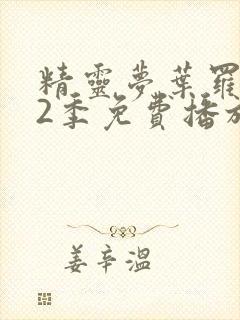 精靈夢葉羅
2季免費播放
姜辛溫